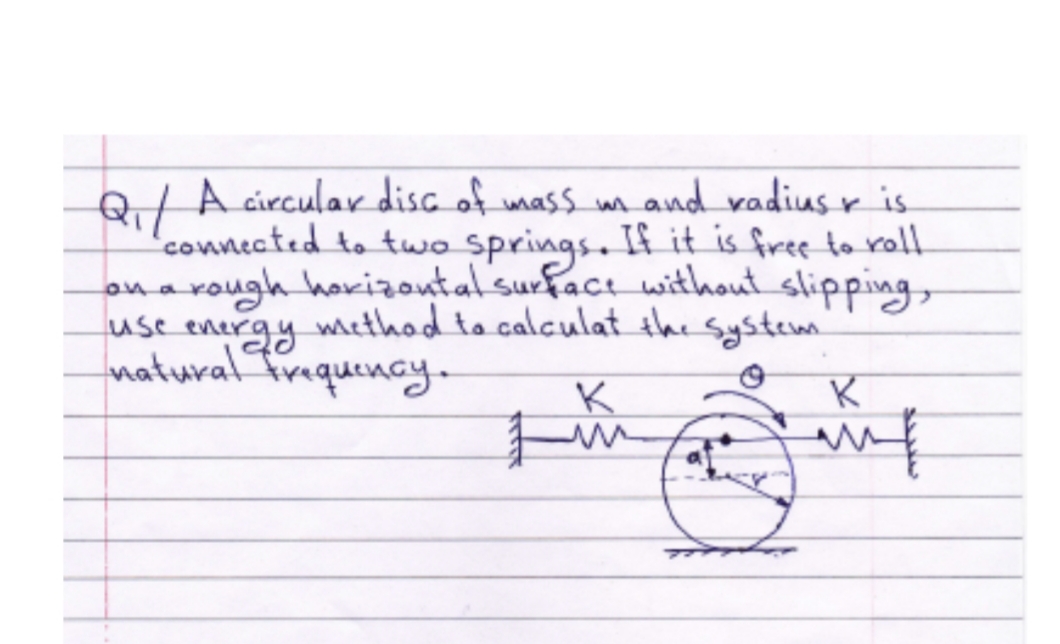 Q1/ A circular disc of mass m and radius r is
connected to two springs. If it is free to roll
on a rough horizontal surface without slipping,
use energy method to calculat the system
natural frequency.
θ
K K
a r